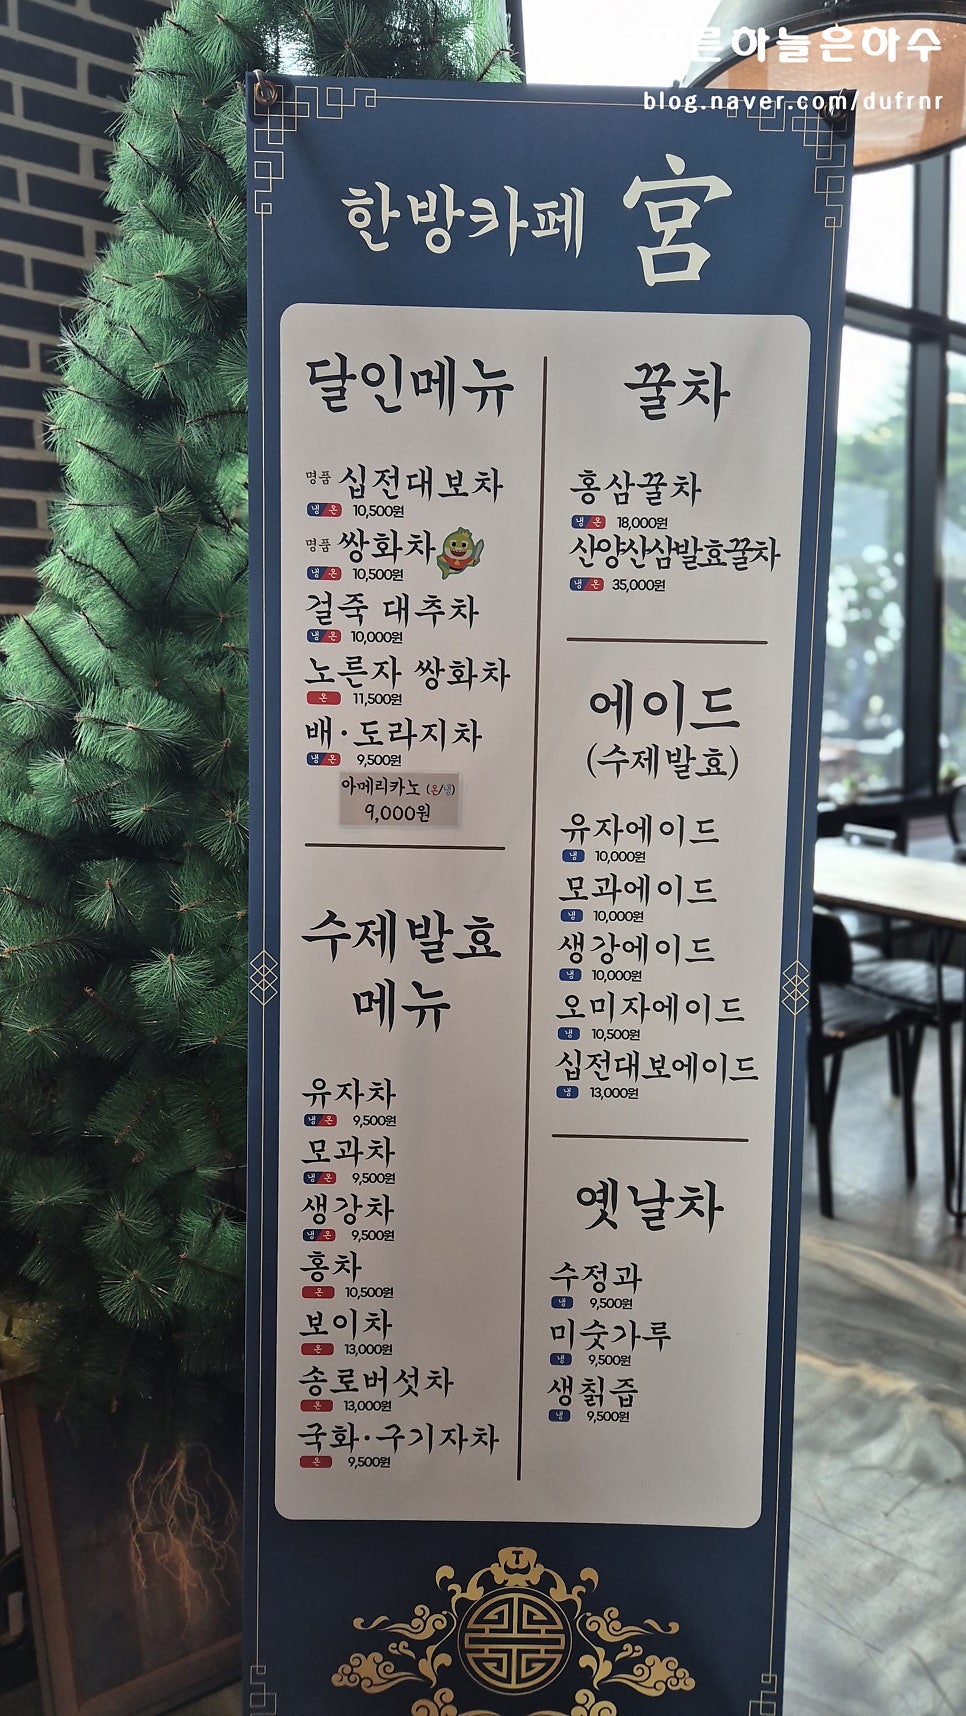 른하늘은하수
blog.naver.com/dufrnr
한방카페 宮
달인메뉴
명품 십전대보차
냉 온 10,500원
명품 쌍화차
냉 온 10,500원
걸죽 대추차
냉 온 10,000원
노른자 쌍화차
온 11,500원
배·도라지차
냉 온 9,500원
아메리카노 (온/냉)
9,000원
수제발효
메뉴
유자차
냉 온 9,500원
모과차
냉 온 9,500원
생강차
냉 온 9,500원
홍차
온 10,500원
보이차
온 13,000원
송로버섯차
온 13,000원
국화·구기자차
온 9,500원
꿀차
홍삼꿀차
냉 온 18,000원
산양산삼발효꿀차
냉 온 35,000원
에이드
(수제발효)
유자에이드
냉 10,000원
모과에이드
냉 10,000원
생강에이드
냉 10,000원
오미자에이드
냉 10,500원
십전대보에이드
냉 13,000원
옛날차
수정과
냉 9,500원
미숫가루
냉 9,500원
생칡즙
냉 9,500원